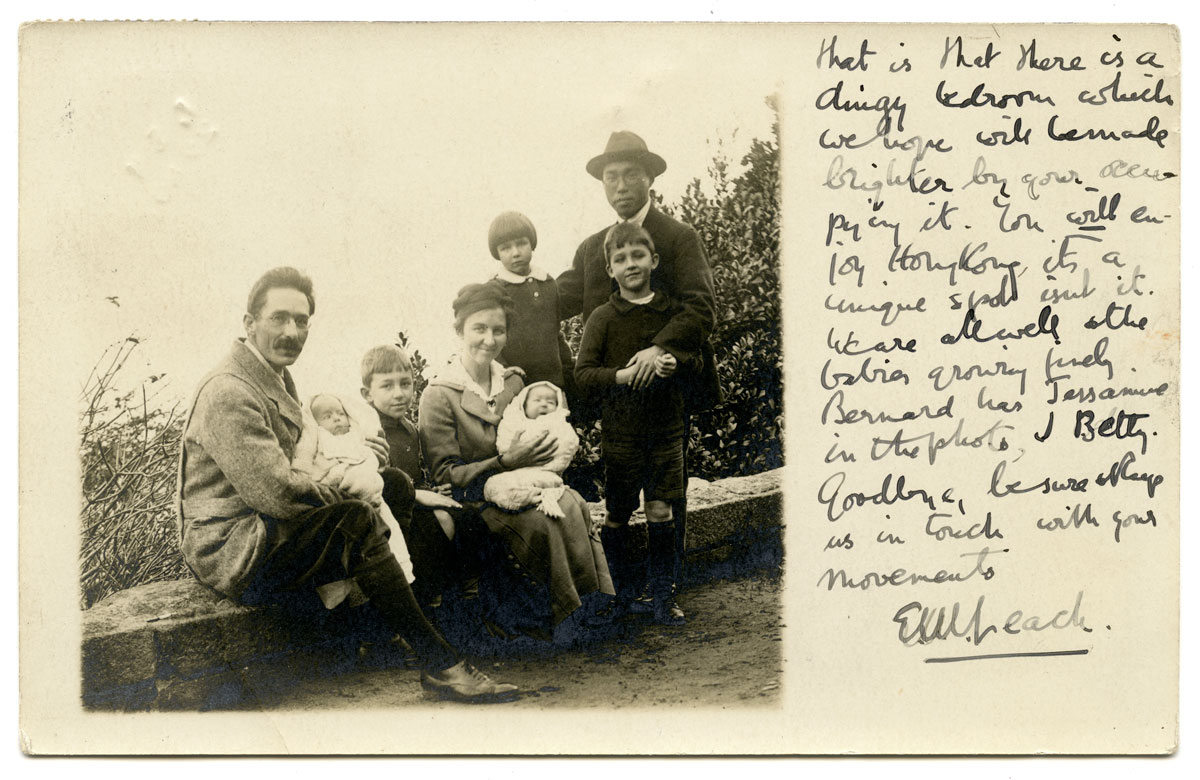 that is that there is a
dingy bedroom which
we hope will be made
brighter by your occu-
pying it. You will en-
joy HongKong, its a
unique spot isnt it.
We are all well & the
babies growing finely
Bernard has Jessamine
in the photo, I Betty.
Goodbye, be sure & keep
us in touch with your
movements
E.M. Leach.